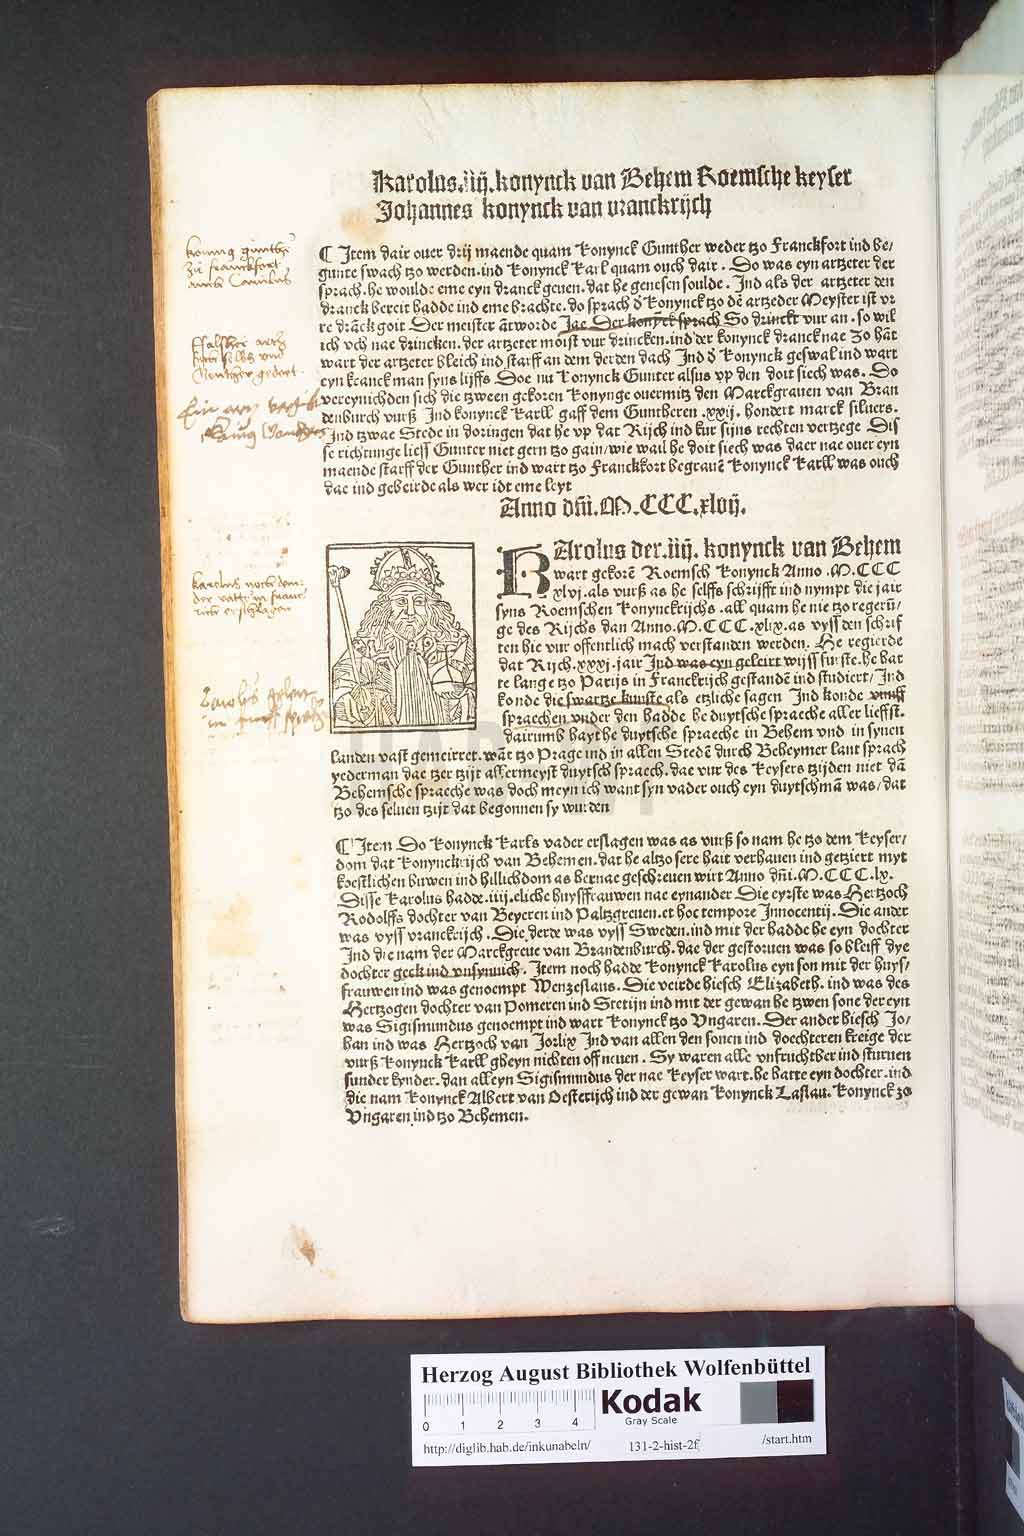 Karolus.iiij.konynck van Behem Roemsche keyser
Johannes konynck van vranckrijch
¶ Item dair ouer drij maende quam Konynck Gunther weder tzo Franckfort ind be/
gunte swach tzo werden.ind Konynck Karl quam ouch dair. Do was eyn artzeter der
sprach.he woulde eme eyn dranck geuen.dat he genesen soulde. Ind als der artzeter den
dranck bereit hadde ind eme brachte.do sprach d̕ Konynck tzo dē artzeder Meyster ist vr
re drāck goit Der meister ātworde Jae Der konyck sprach So drinckt vur an.so wil
ich vch nae drincken. der artzeter moist vur drincken.ind der konynck dranck nae Zo hāt
wart der artzeter bleich ind starff an dem derden dach Ind d̕ Konynck geswal ind wart
eyn kranck man syns lijffs Doe nu Konynck Gunter alsus vp den doit siech was. Do
vereynichden sich die tzween gekoren Konynge ouermitz den Marckgrauen van Bran
denburch vurß Ind konynck Karll gaff dem Guntheren .xxij. hondert marck siluers.
Ind tzwae Stede in doringen dat he vp dat Rijch ind kur sijns rechten vertzege Dis
se richtunge liess Gunter niet gern tzo gain/wie wail he doit siech was daer nae ouer eyn
maende starff der Gunther ind wart tzo Franckfort begrauē Konynck Karll was ouch
dae ind gebeirde als wer idt eme leyt
Anno dñi.M.CCC.xlvij.
KArolus der.iiij. konynck van Behem
wart gekorē Roemsch Konynck Anno .M.CCC
xlvj.als vurß as he selffs schrijfft ind nympt die jair
syns Roemschen Konynckrijchs.all quam he nie tzo regerū/
ge des Rijchs dan Anno.M.CCC.xlix.as vyss den schrif
ten hie vur offentlich mach verstanden werden. He regierde
dat Rijch.xxxj.jair Ind was eyn geleirt wijss furste.he hat
te lange tzo Parijs in Franckrijch gestandē ind studiert/Ind
konde die swartze kunste als etzliche sagen Ind konde vunff
spraechen vnder den hadde he duytsche spraeche aller liefft.
dairumb hayt he duytsche spraeche in Behem vnd in synen
landen vast gemeirret.wāt tzo Prage ind in allen Stedē durch Beheymer lant sprach
yederman dae tzer tzijt allermeyst duytsch spraech.dae vur des Keysers tzijden niet dā
Behemsche spraeche was doch meyn ich want syn vader ouch eyn duytschmā was/dat
tzo des seluen tzijt dat begonnen sy wurden
¶ Item Do Konynck Karls vader erslagen was as vurß so nam he tzo dem Keyser/
dom dat Konynckrijch van Behemen.dat he altzo sere hait verhauen ind getziert myt
koestlichen buwen ind hillichdom as hernae geschreuen wirt Anno dñi.M.CCC.lx.
Disse Karolus hadde.iiij.eliche huysffrauwen nae eynander Die eyrste was Hertzoch
Rodolffs dochter van Beyeren ind Paltzgreuen.et hoc tempore Innocentij. Die ander
was vyss vranckrijch. Die derde was vyss Sweden.ind mit der hadde he eyn dochter
Ind die nam der Marckgreue van Brandenburch.dae der gestoruen was so bleiff dye
dochter geck ind vnsynnich. Item noch hadde Konynck Karolus eyn son mit der huys/
frauwen ind was genoempt Wenzeslaus. Die veirde hiesch Elizabeth. ind was des
Hertzogen dochter van Pomeren ind Stetijn ind mit der gewan he tzwen sone der eyn
was Sigismundus genoempt ind wart Konynck tzo Vngaren. Der ander hiesch Jo/
han ind was Hertzoch van Jorlix Ind van allen den sonen ind doechteren kreige der
vurß Konynck Karll gheyn nichten off neuen. Sy waren alle vnfruchtber ind sturuen
sunder kynder. dan alleyn Sigismundus der nae Keyser wart.he hatte eyn dochter.ind
die nam Konynck Albert van Oesterijch ind der gewan Konynck Laslau. Konynck zo
Vngaren ind tzo Behemen.
Herzog August Bibliothek Wolfenbüttel
Kodak
Gray Scale
0 1 2 3 4
http://diglib.hab.de/inkunabeln/ 131-2-hist-2f /start.htm